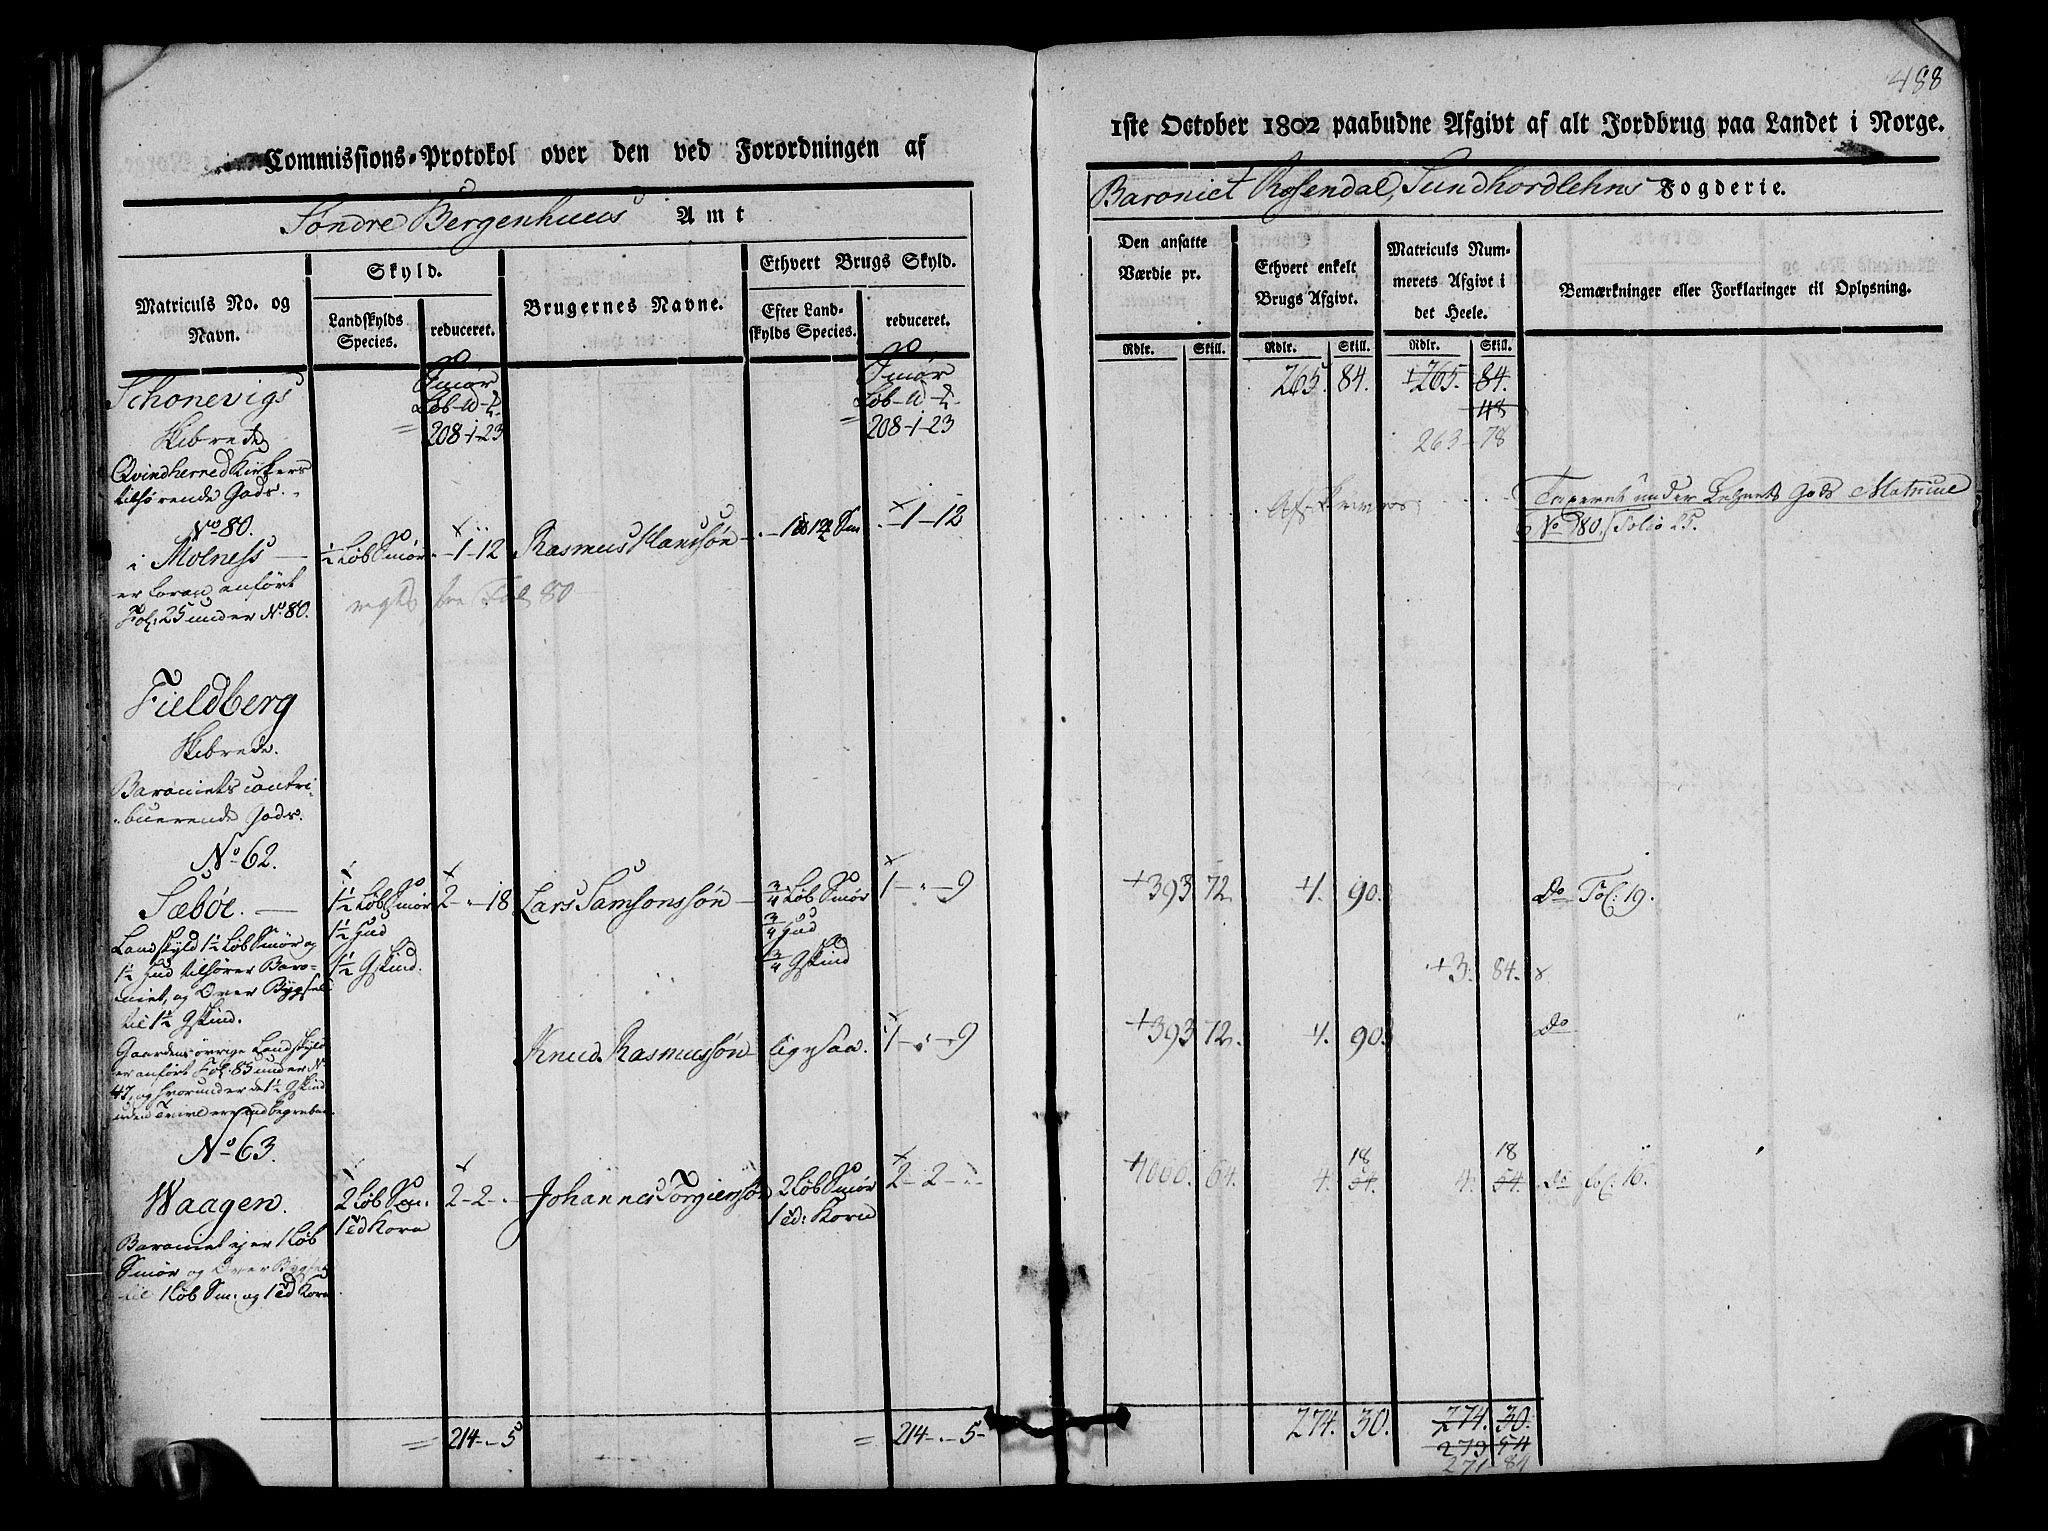 488
Commissions-Protokol over den ved Forordningen af
1ste October 1802 paabudne Afgivt af alt Jordbrug paa Landet i Norge.
Søndre Bergenhuus Amt
Baroniet Rosendal, Sundhordlehns Fogderie.
Matriculs No. og Navn.
Skyld.
Landskylds Species.
reduceret.
Brugernes Navne.
Ethvert Brugs Skyld.
Efter Landskylds Species.
reduceret.
Den ansatte Værdie pr.
Ethvert enkelt Brugs Afgivt.
Matriculs Nummerets Afgivt i det Heele.
Bemærkninger eller Forklaringer til Oplysning.
Rdlr. Skill. Rdlr. Skill. Rdlr. Skill.
Schonevigs
Skibrede
Smør
Løb
208-1-23
Smør
Løb
208-1-23
265. 84. 265. 84.
48
263-78
Qvindherred Kirkes
tilhørende Gods.
No 80.
i Molness
er foran anført
Fol: 25 under No 80.
½ Løb Smør -1-12 Rasmus Hansøn -1-12
Fol 80
under Matricul
No 80. Folio 25.
Fieldberg
Skibrede.
Baroniets contri-
buerende Gods.
No 62.
Sæbøe.
1½ Løb Smør 2-"-18 Lars Samsonssøn ¾ Løb Smør 1-"-9 393 72. 4. 90. Do Fol: 19.
1½ Hud
1½ Gskind.
¾ Hud
¾ Gskind
3. 84.
Landskyld 1½ Løb Smør og
1½ Hud tilhører Baro-
niet, og Over Bygsel
til 1½ Gskind.
Gaardens øvrige Landskyld
er anført Fol 83 under No
47, og hvorunder de 1½ Gskind
uden Tvivl er
Knud Rasmussøn ligesaa. 1-"-9 393 72. 4. 90. Do
No 63.
Waagen.
2 Løb Sm: 2-2-" Johannes Torgierssøn 2 Løb Smør 2-2-" 64. 4. 54. 4. 54. Do fol: 16.
18 18
1 Korn
1 Korn
Baroniet ejer 1 Løb
Smør og Over Bygsel
til 1 Løb Sm: og 1 Korn
214-"-5 214-"-5- 274. 30. 274. 30.
273 54
271-84